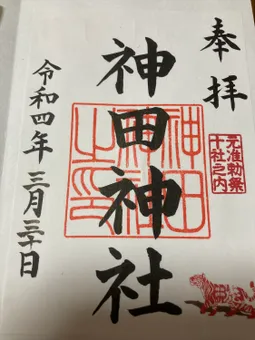 奉拝
元准勅祭
十社之内
神田神社
神田
神社
之印
令和四年三月三十日